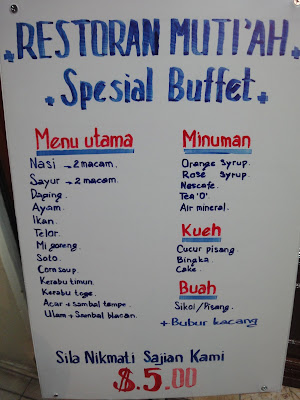 RESTORAN MUTI'AH
Spesial Buffet
Menu utama
Nasi → 2 macam.
Sayur → 2 macam.
Daging.
Ayam.
Ikan.
Telor.
Mi goreng.
Soto.
Corn soup.
Kerabu timun.
Kerabu toge.
Acar + sambal tempe.
Ulam → Sambal blacan.
Minuman
Orange Syrup.
Rose Syrup.
Nescafe.
Tea 'O'
Air mineral.
Kueh
Cucur pisang
Bingka
Cake.
Buah
Sikoi/Pisang.
+ Bubur kacang
Sila Nikmati Sajian Kami
$.5.00